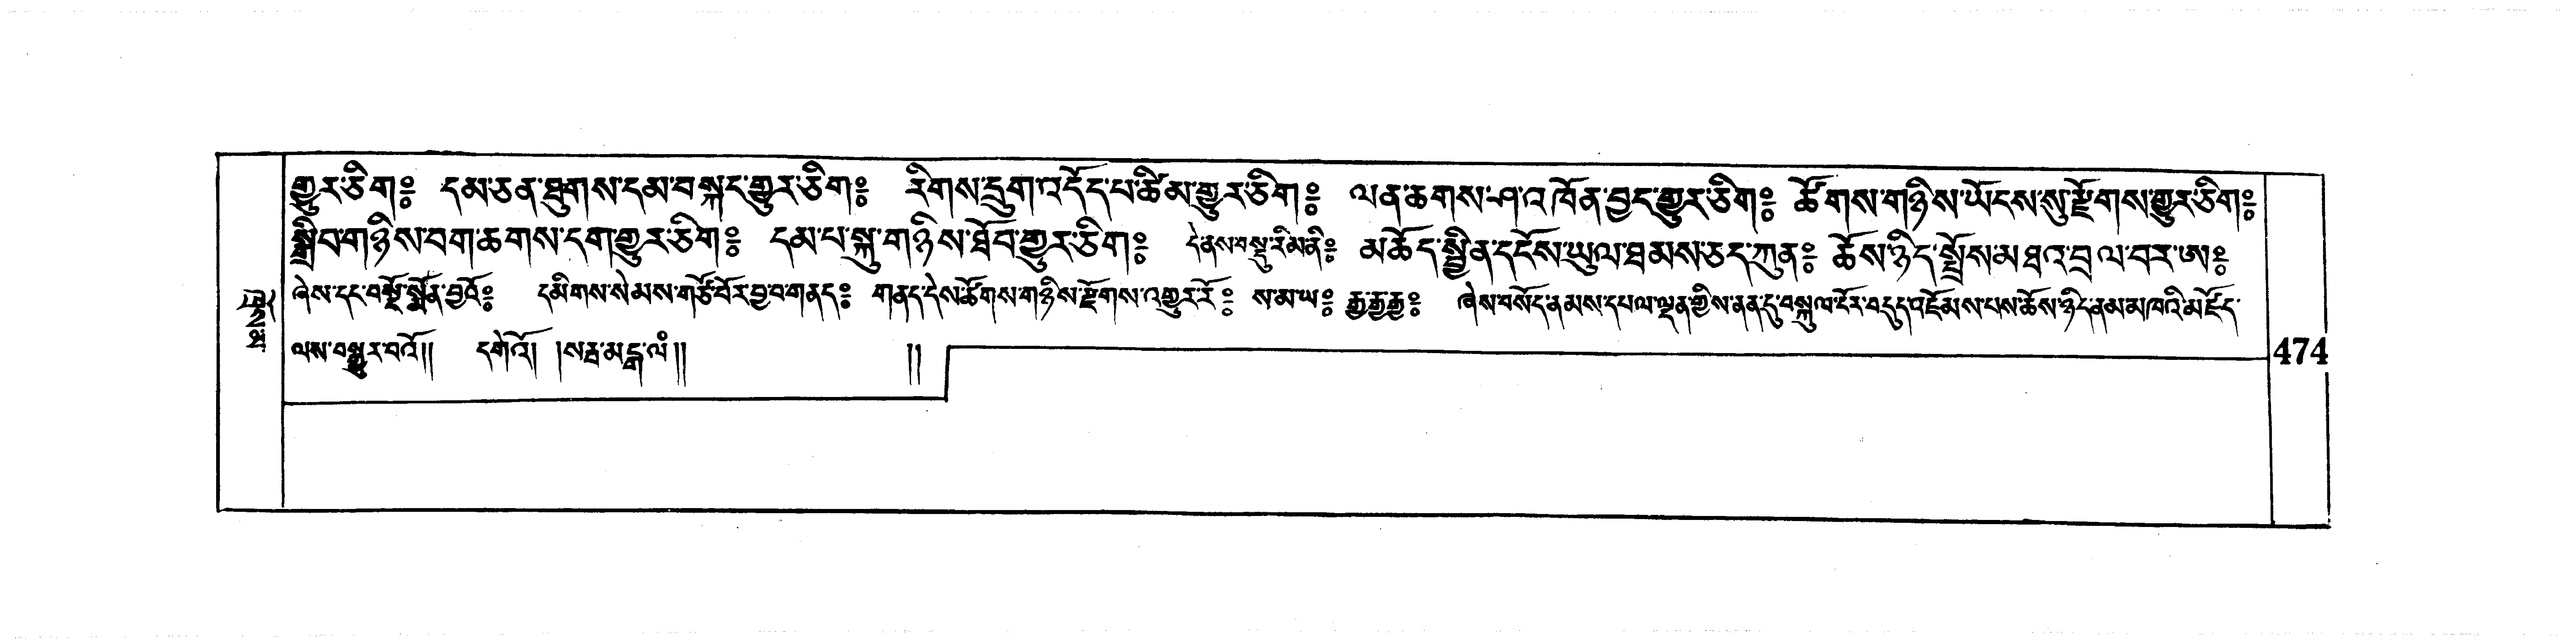 གྱུར་ཅིག༔ དམ་ཅན་ཐུགས་དམ་བསྐང་གྱུར་ཅིག༔ རིགས་དྲུག་འདོད་པ་ཚིམ་གྱུར་ཅིག༔ ལན་ཆགས་ཤ་འཁོན་བྱང་གྱུར་ཅིག༔ ཚོགས་གཉིས་ཡོངས་སུ་རྫོགས་གྱུར་ཅིག༔
སྒྲིབ་གཉིས་བག་ཆགས་དག་གྱུར་ཅིག༔ དམ་པ་སྐུ་གཉིས་ཐོབ་གྱུར་ཅིག༔ དེ་ནས་བསྡུ་རིམ་ནི༔ མཆོད་སྦྱིན་དངོས་ཡུལ་ཐམས་ཅད་ཀུན༔ ཆོས་ཉིད་སྤྲོས་མཐའ་བྲལ་བར་ཨ༔
ཞེས་དང་བསྔོ་སྨོན་བྱའོ༔ དམིགས་སེམས་གཙོ་བོར་བྱ་བ་གནད༔ གནད་དེས་ཚོགས་གཉིས་རྫོགས་འགྱུར་རོ༔ ས་མ་ཡ༔ རྒྱ་རྒྱ་རྒྱ༔ ཞེས་བསོད་ནམས་དཔལ་ལྡན་གྱིས་ནན་དུ་བསྐུལ་ངོར་བདུད་འཇོམས་པས་ཆོས་ཉིད་ནམ་མཁའི་མཛོད་
ལས་བསྒྱུར་བའོ།། དགེའོ། །སརྦ་མངྒ་ལཾ།། །།
474